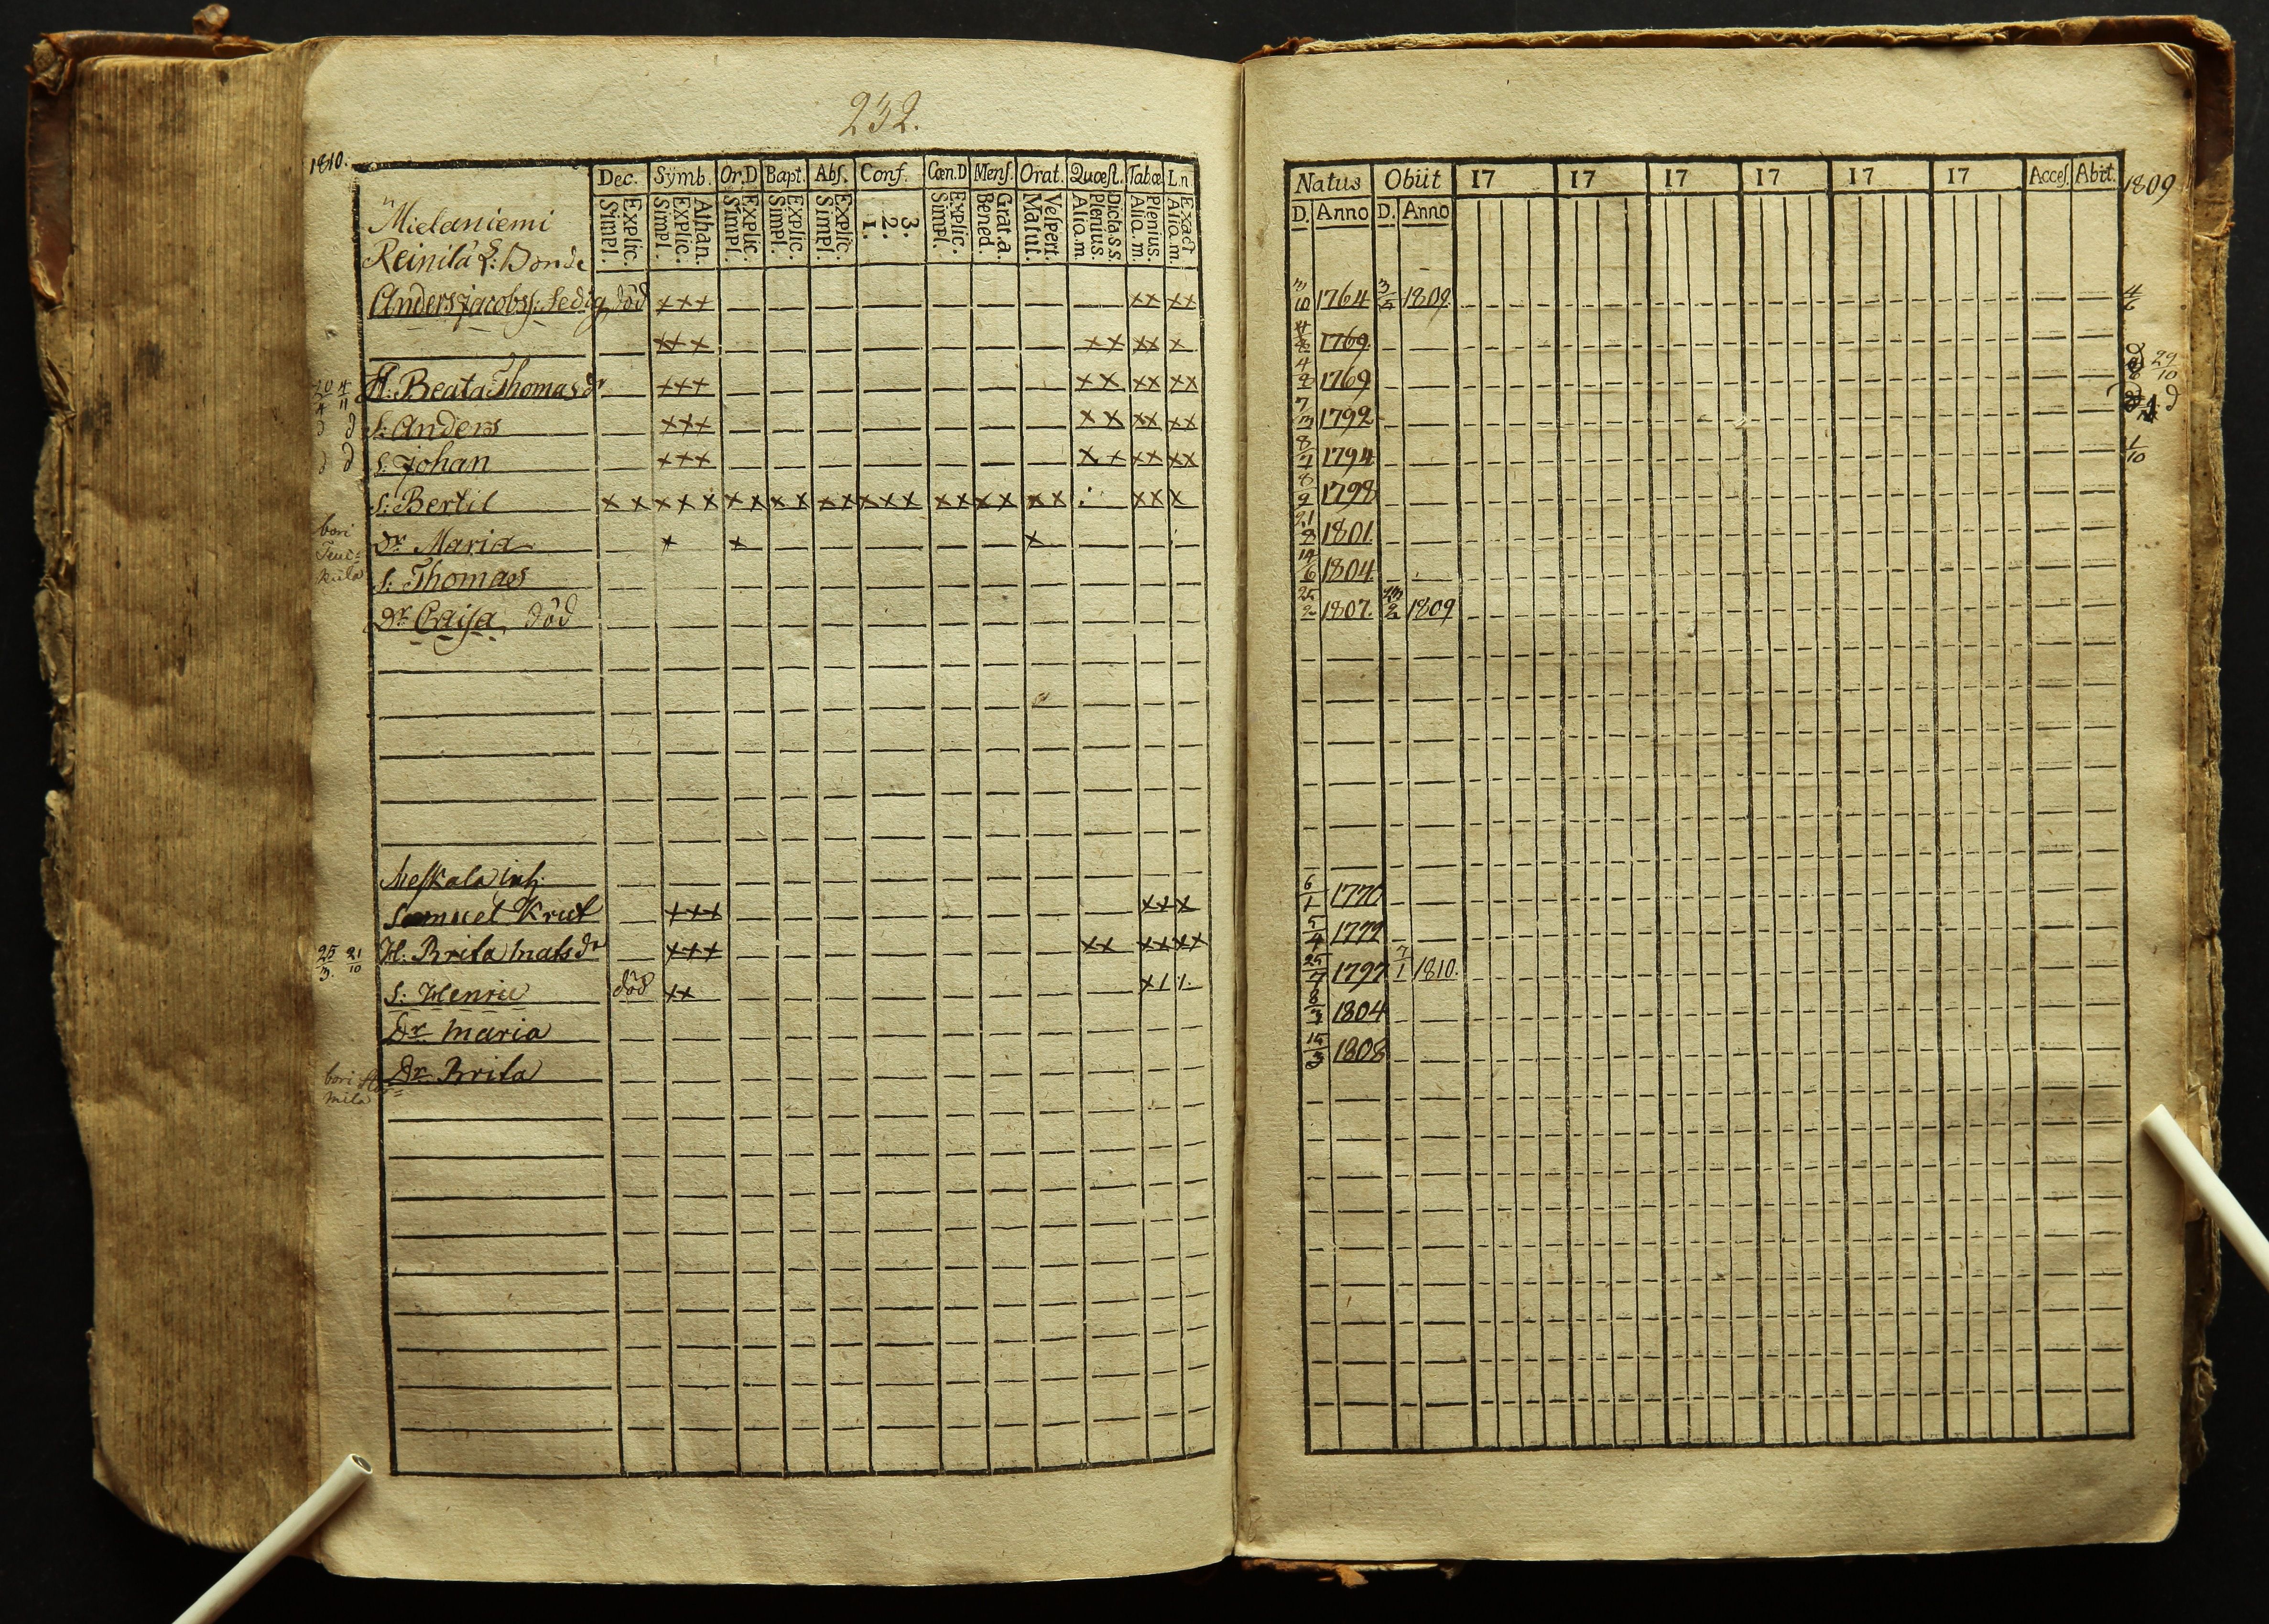 232.
1810.
Dec. Symb. Or.D Bapt. Abſ. Conf. Cœn.D Menſ. Orat. Quœſt. Tabœ L.n.
Explic. Simpl. Athan. Explic. Simpl. Explic. Simpl. Explic. Simpl. Explic. Simpl. 3. 2. 1. Explic. Simpl. Grat.a. Bened. Veſpert. Matut. Dicta s s. Plenius. Alio.m Plenius. Alio.m. Exact Alio.m.
Mielaniemi
Reinilä Bonde
Anders Jacobsſ: ledig, död xxx xx xx
xxx xx xx x
20 4 H. Beata Thomas dr xxx xx xx xx
4 11
d d S: Anders xxx xx xx xx
d d S: Johan xxx xx xx xx
S: Bertil xx xxx xx xx xx xxx xx xx xx xx x
bori
Dr Maria x x x
S: Thomas
Dr Caisa, död
Meſkala inh.
Samuel Krut xxx xxx
25 21 H. Brita Mats dr xxx xx xx xx
3. 10
S: Henric död xx
Dr Maria
bori Dr Brita
Natus Obiit 17 17 17 17 17 17 Acceſ. Abiit. 1809
D. Anno D. Anno
10 1764 3 1809 4 6
1769
4 8 1769 29 10
7 3 1792 d
8 1794 1 10
8 2 1798
21 8 1801
6 1804
25 2 1807 2 1809
6 1 1770
5 4 1777
25 7 1797 7 1 1810.
8 3 1804
3 1808